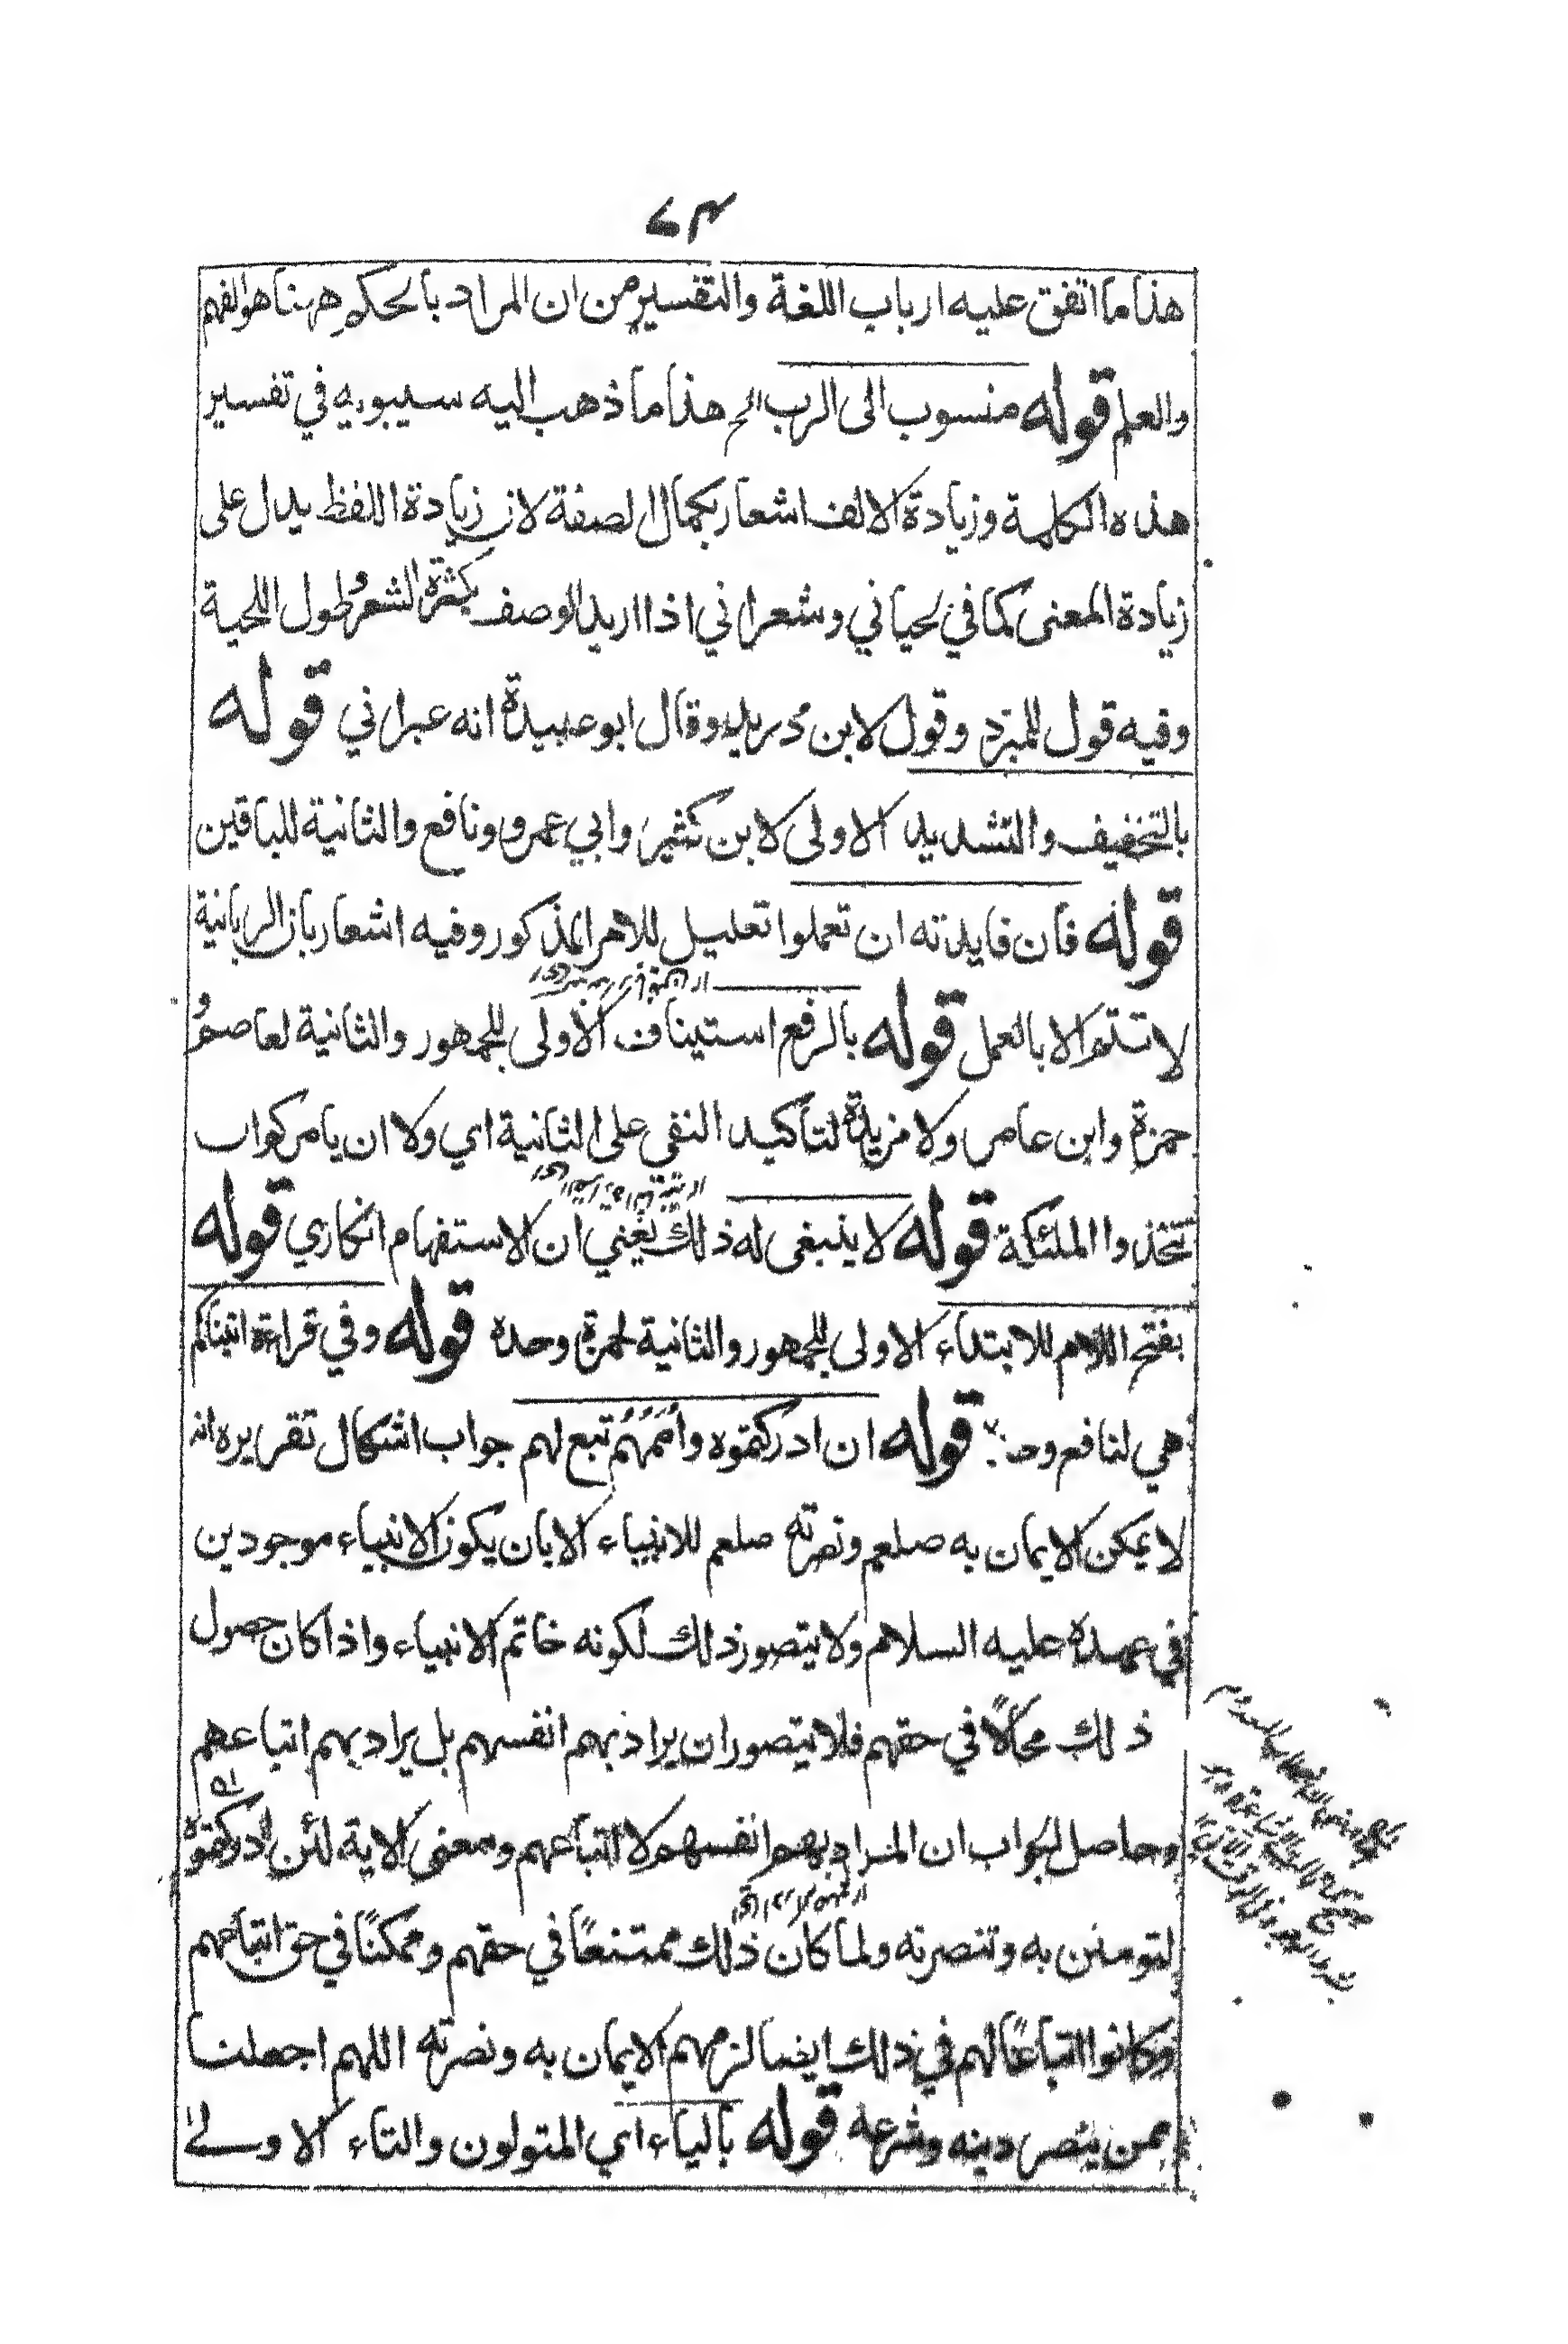 ٧٣
هذا ما اتفق عليه ارباب اللغة والتفسير من ان المراد بالحكم ههنا هو الفهم
والعلم قوله منسوب الى الرب الخ هذا ما ذهب اليه سيبويه في تفسير
هذه الكلمة وزيادة الالف اشعار بكمال الصفة لان زيادة اللفظ يدل على
زيادة المعنى كما في لحياني وشعراني اذا اريد الوصف بكثرة الشعر وطول اللحية
وفيه قول للمبرّد وقول لابن دريد وقال ابو عبيدة انه عبراني قوله
بالتخفيف والتشديد الاولى لابن كثير وابي عمرو ونافع والثانية للباقين
قوله فان فايدته ان تعملوا تعليل للامر المذكور وفيه اشعار بان الربانية
لا تتم الا بالعمل قوله بالرفع استيناف الاولى للجمهور والثانية لعاصم و
حمزة وابن عامر ولا مزيدة لتاكيد النفي على الثانية اي ولا ان يامركم ان
تتخذوا الملئكة قوله لا ينبغي له ذلك يعني ان الاستفهام انكاري قوله
بفتح اللام للابتداء الاولى للجمهور والثانية لحمزة وحده قوله وفي قراءة اتيناكم
هي لنافع وحده قوله ان ادركتموه واُمَمُهُم تبع لهم جواب اشكال تقريره انه
لا يمكن الايمان به صلعم ونصرته صلعم للانبياء الا بان يكون الانبياء موجودين
في عهده عليه السلام ولا يتصور ذلك لكونه خاتم الانبياء واذا كان حصول
ذلك محالًا في حقهم فلا يتصور ان يراد بهم انفسهم بل يراد بهم اتباعهم
وحاصل الجواب ان المراد بهم انفسهم لا اتباعهم ومعنى الاية لئن ادركتموه
لتومنن به وتنصرنه ولما كان ذلك ممتنعًا في حقهم وممكنًا في حق اتباعهم
وكانوا اتباعًا لهم في ذلك ايضا لزمهم الايمان به ونصرته اللهم اجعلنا
ممن ينصر دينه وشرعه قوله بالياء اي المتولون والتاء الاولى